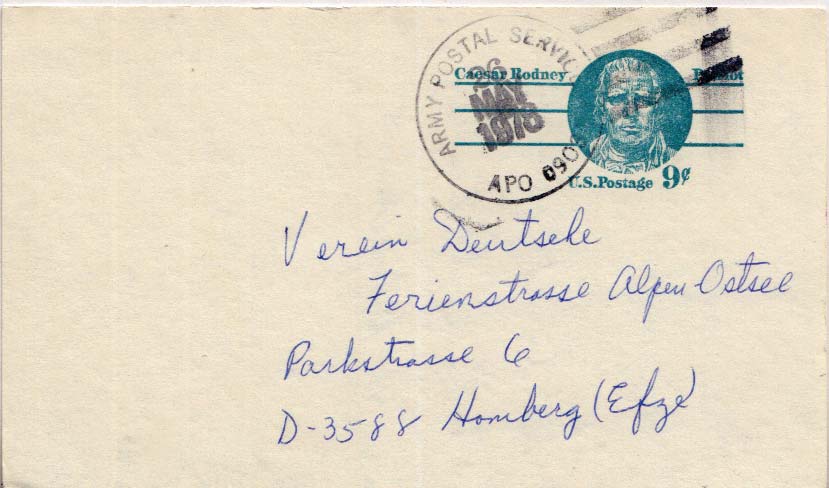 ARMY POSTAL SERVIC
26
MAY
1978
APO 090
Caesar Rodney
U.S.Postage 9¢
Verein Deutsche
Ferienstrasse Alpen-Ostsee
Parkstrasse 6
D-3588 Homberg (Efze)